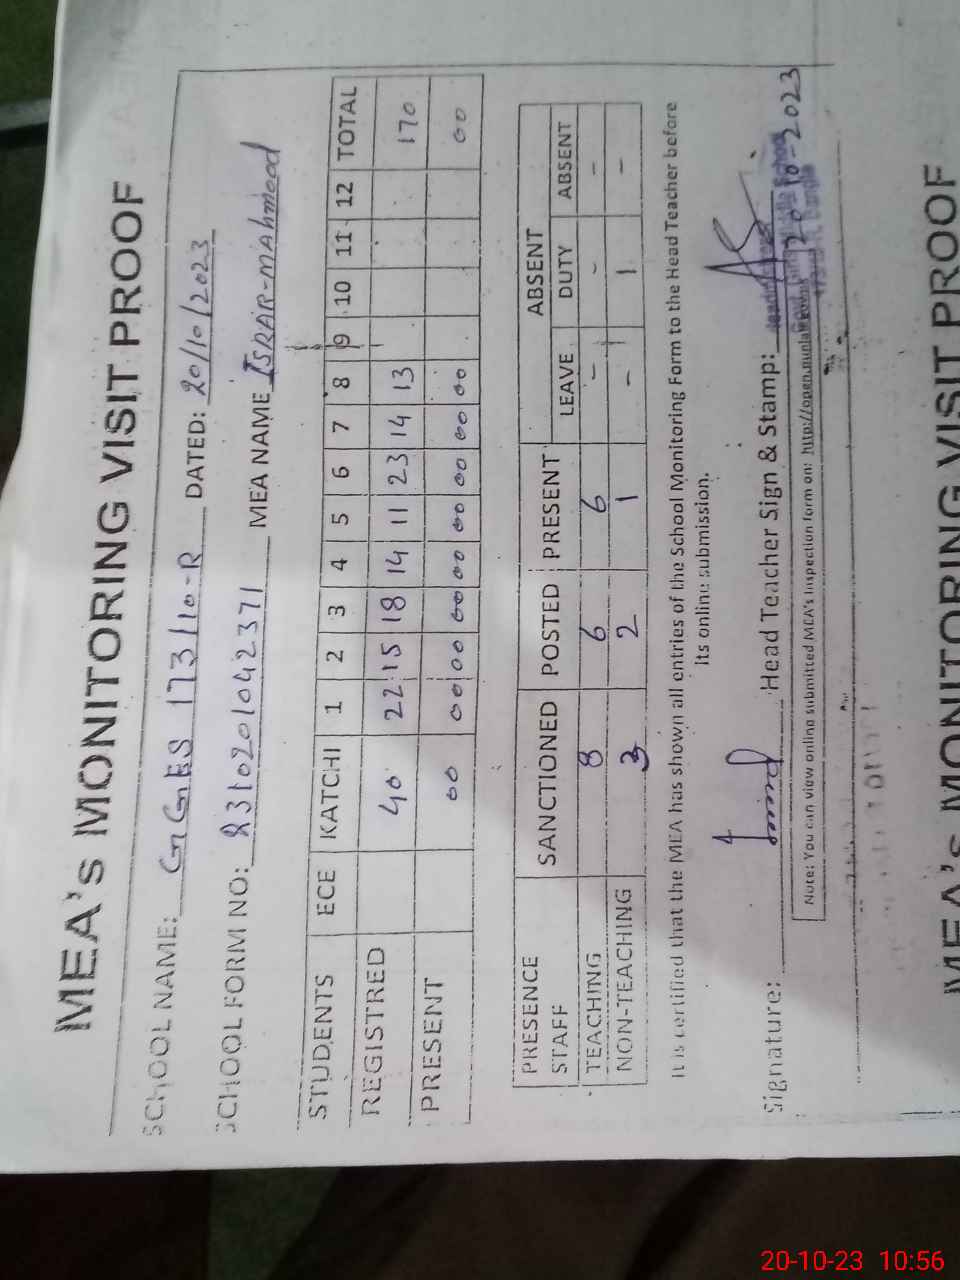 MEA's MONITORING VISIT PROOF
SCHOOL NAME: GGES 173/10-R DATED: 20/10/2023
SCHOOL FORM NO: R31020101042371 MEA NAME ISRAR-MAHMOOD
STUDENTS ECE KATCHI 1 2 3 4 5 6 7 8 9 10 11 12 TOTAL
REGISTRED 40 22 15 18 14 11 23 14 13 170
PRESENT 00 00 00 00 00 00 00 00 00 00
PRESENCE STAFF SANCTIONED POSTED PRESENT ABSENT
LEAVE DUTY ABSENT
TEACHING 8 6 6 - - -
NON-TEACHING 3 2 1 - 1 -
It is certified that the MEA has shown all entries of the School Monitoring Form to the Head Teacher before
its online submission.
Signature: Head Teacher Sign & Stamp: 20-10-2023
Note: You can view online submitted MEA's inspection form on:
MEA's MONITORING VISIT PROOF
20-10-23 10:56